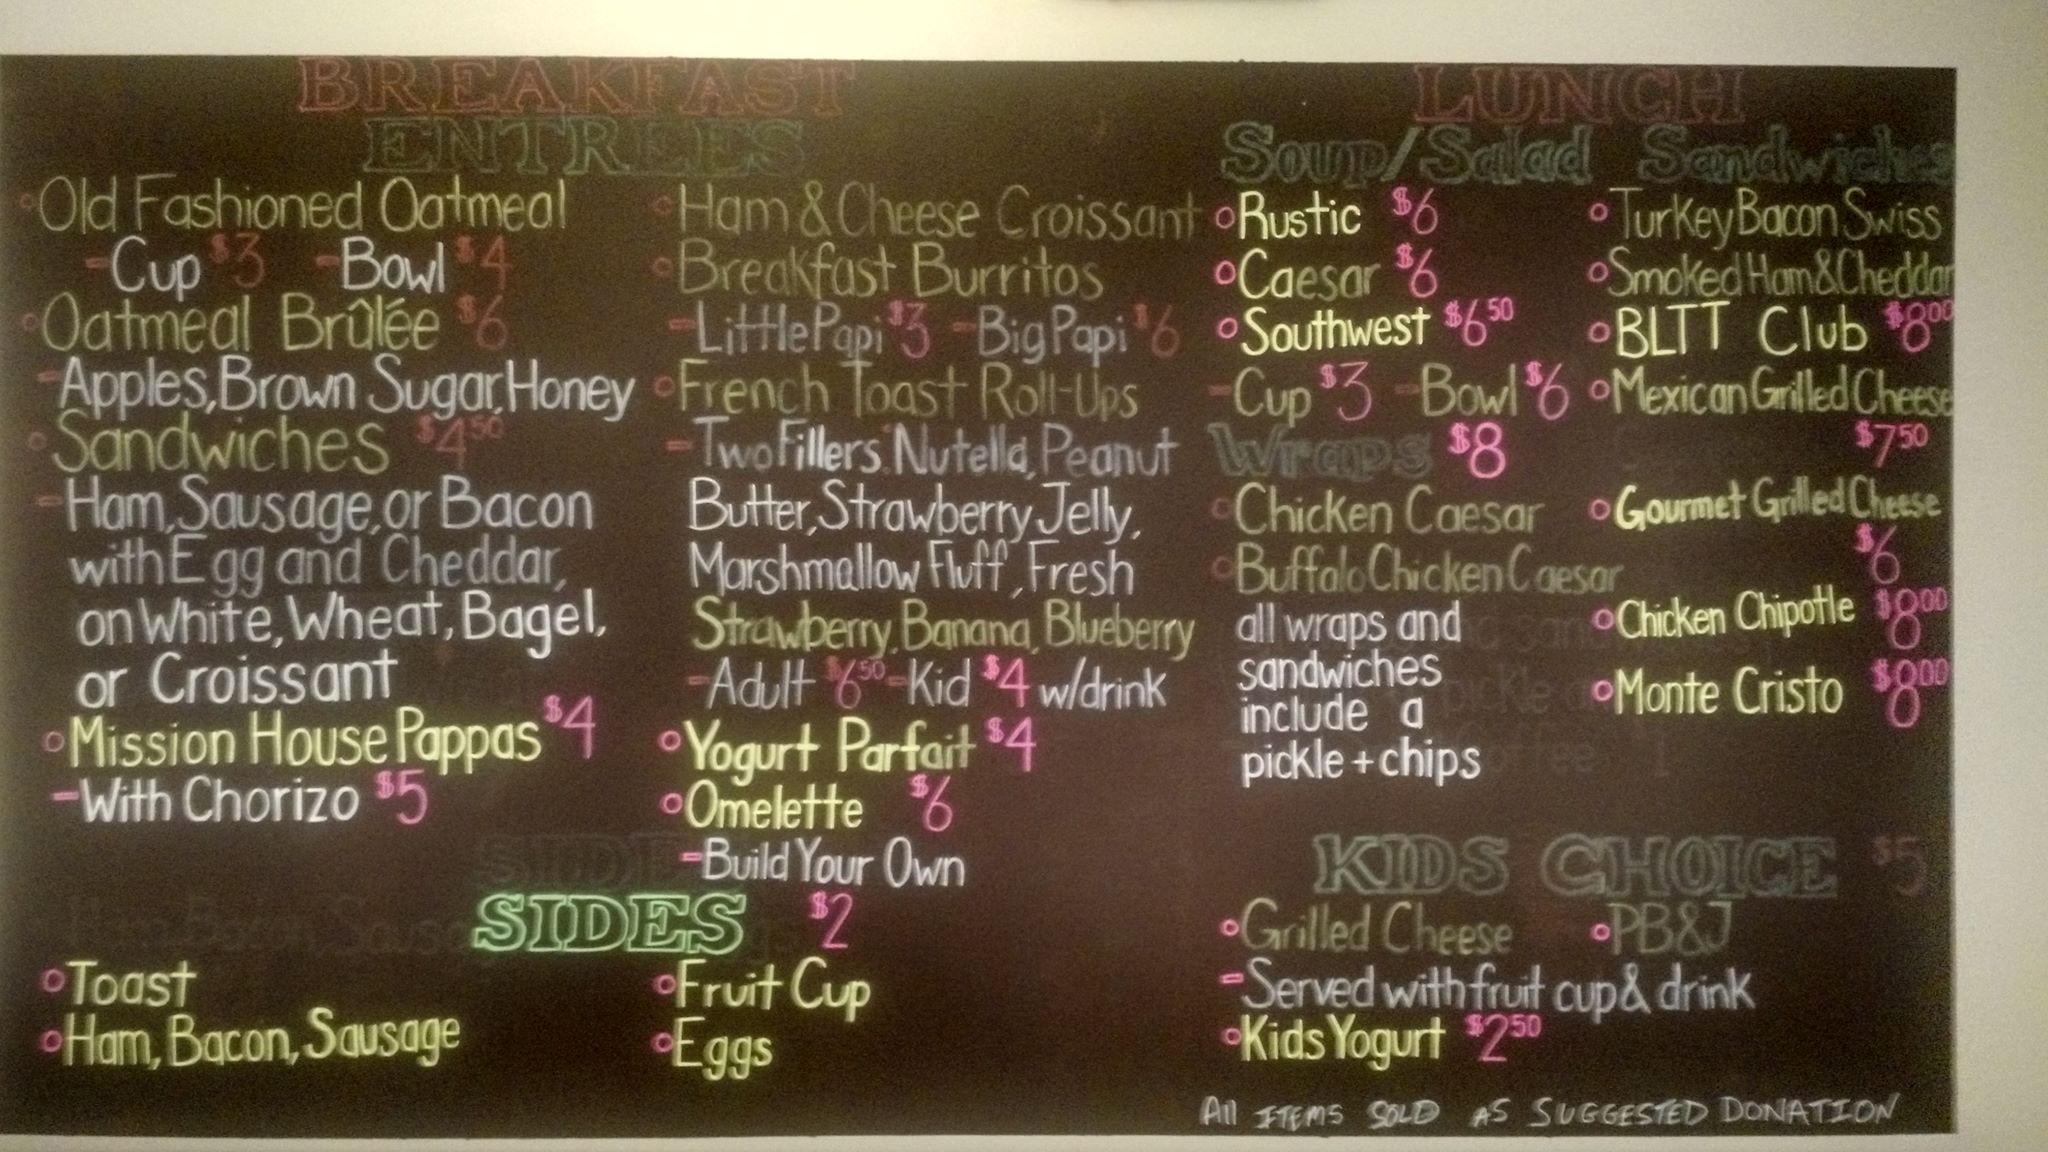 BREAKFAST
ENTREES
Old Fashioned Oatmeal
-Cup $3 -Bowl $4
Oatmeal Brûlée $6
-Apples, Brown Sugar, Honey
Sandwiches $4.50
-Ham, Sausage, or Bacon
with Egg and Cheddar,
on White, Wheat, Bagel,
or Croissant
Mission House Pappas $4
-With Chorizo $5
Ham & Cheese Croissant
Breakfast Burritos
-Little Papi $3 -Big Papi $6
French Toast Roll-Ups
-Two Fillers. Nutella, Peanut
Butter, Strawberry Jelly,
Marshmallow Fluff, Fresh
Strawberry, Banana, Blueberry
-Adult $6.50 -Kid $4 w/drink
Yogurt Parfait $4
Omelette $6
-Build Your Own
SIDES $2
Toast
Ham, Bacon, Sausage
Fruit Cup
Eggs
LUNCH
Soup/Salad
Rustic $6
Caesar $6
Southwest $6.50
-Cup $3 -Bowl $6
Wraps $8
Chicken Caesar
Buffalo Chicken Caesar
all wraps and
sandwiches
include a
pickle + chips
Sandwiches
Turkey Bacon Swiss
Smoked Ham & Cheddar
BLTT Club $8.00
Mexican Grilled Cheese
$7.50
Gourmet Grilled Cheese
$6
Chicken Chipotle $8.00
Monte Cristo $8.00
KIDS CHOICE $5
Grilled Cheese PB&J
-Served with fruit cup & drink
Kids Yogurt $2.50
All ITEMS SOLD AS SUGGESTED DONATION